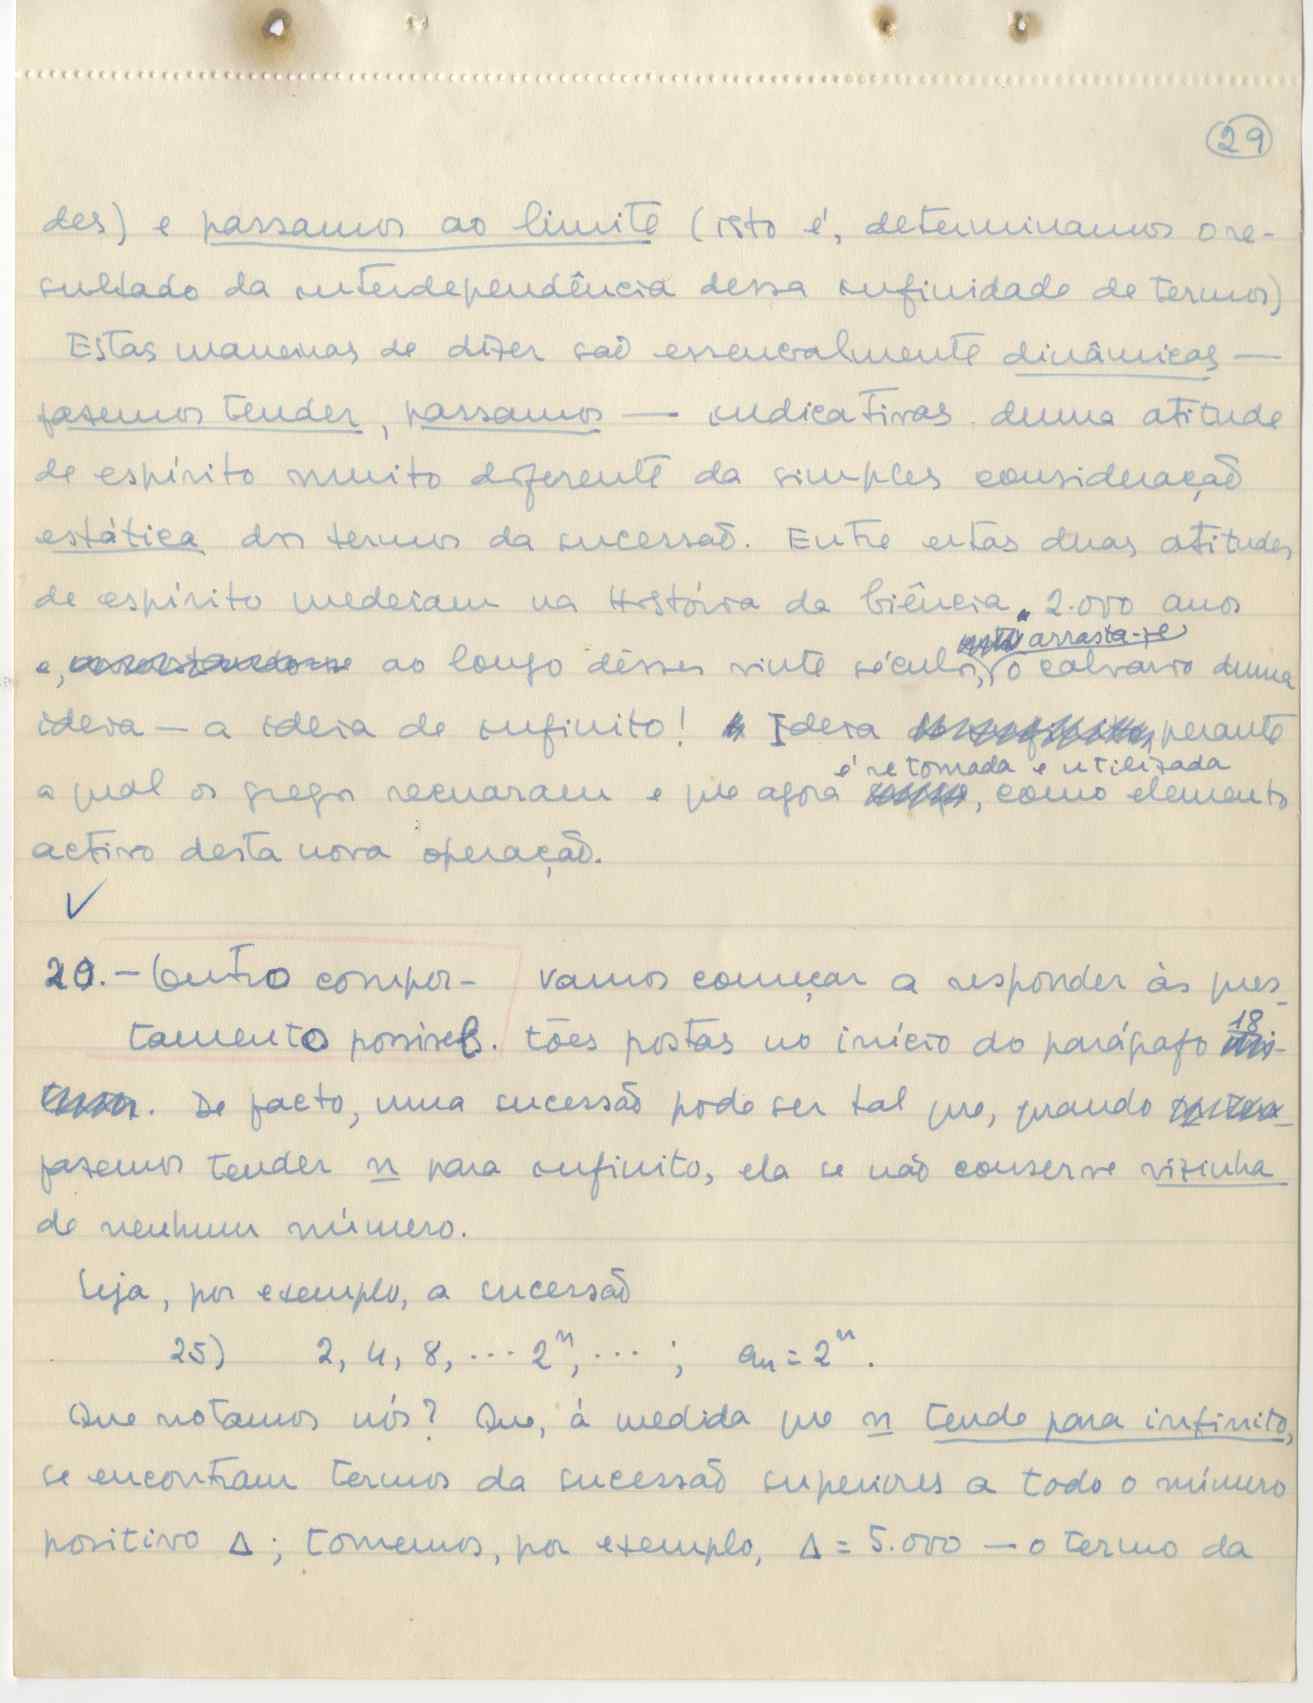 29
des) e passamos ao limite (isto é, determinamos o re-
sultado da interdependência dessa infinidade de termos)
Estas maneiras de dizer são essencialmente dinâmicas —
fazemos tender, passamos — indicativas duma atitude
de espírito muito diferente da simples consideração
estática dos termos da sucessão. Entre estas duas atitudes
de espírito medeiam na História da Ciência 2.000 anos
arrasta-se
e, ao longo dêsses vinte séculos, o calvario duma
ideia — a ideia de infinito! Ideia perante
é retomada e utilizada
a qual os gregos recuaram e que agora , como elemento
activo desta nova operação.
20. — Outro compor- Vamos começar a responder às ques-
tamento possivel. tões postas no início do parágrafo 18
. De facto, uma sucessão pode ser tal que, quando
fazemos tender n para infinito, ela se não conserve vizinha
de nenhum número.
Seja, por exemplo, a sucessão
25) 2, 4, 8, ... 2ⁿ, ... ; aₙ = 2ⁿ.
Que notamos nós? Que, à medida que n tende para infinito,
se encontram termos da sucessão superiores a todo o número
positivo Δ; tomemos, por exemplo, Δ = 5.000 — o termo da